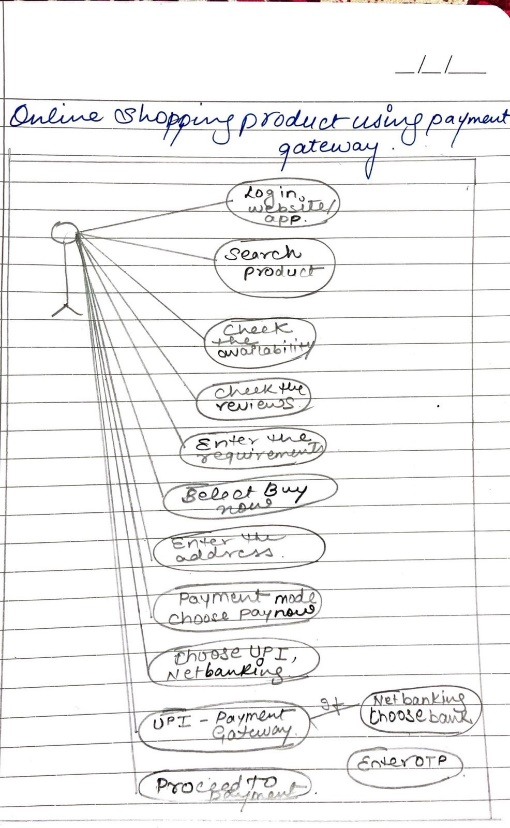 _/_/_
Online shopping product using payment
gateway.
Login,
website/
app.
Search
product
Check
the
availability
Check the
reviews
Enter the
requirements
Select Buy
now
Enter the
address.
Payment mode
choose paynow
Choose UPI,
Netbanking
UPI - Payment
Gateway
If
Netbanking
Choose bank
Enter OTP
Proceed to
payment.